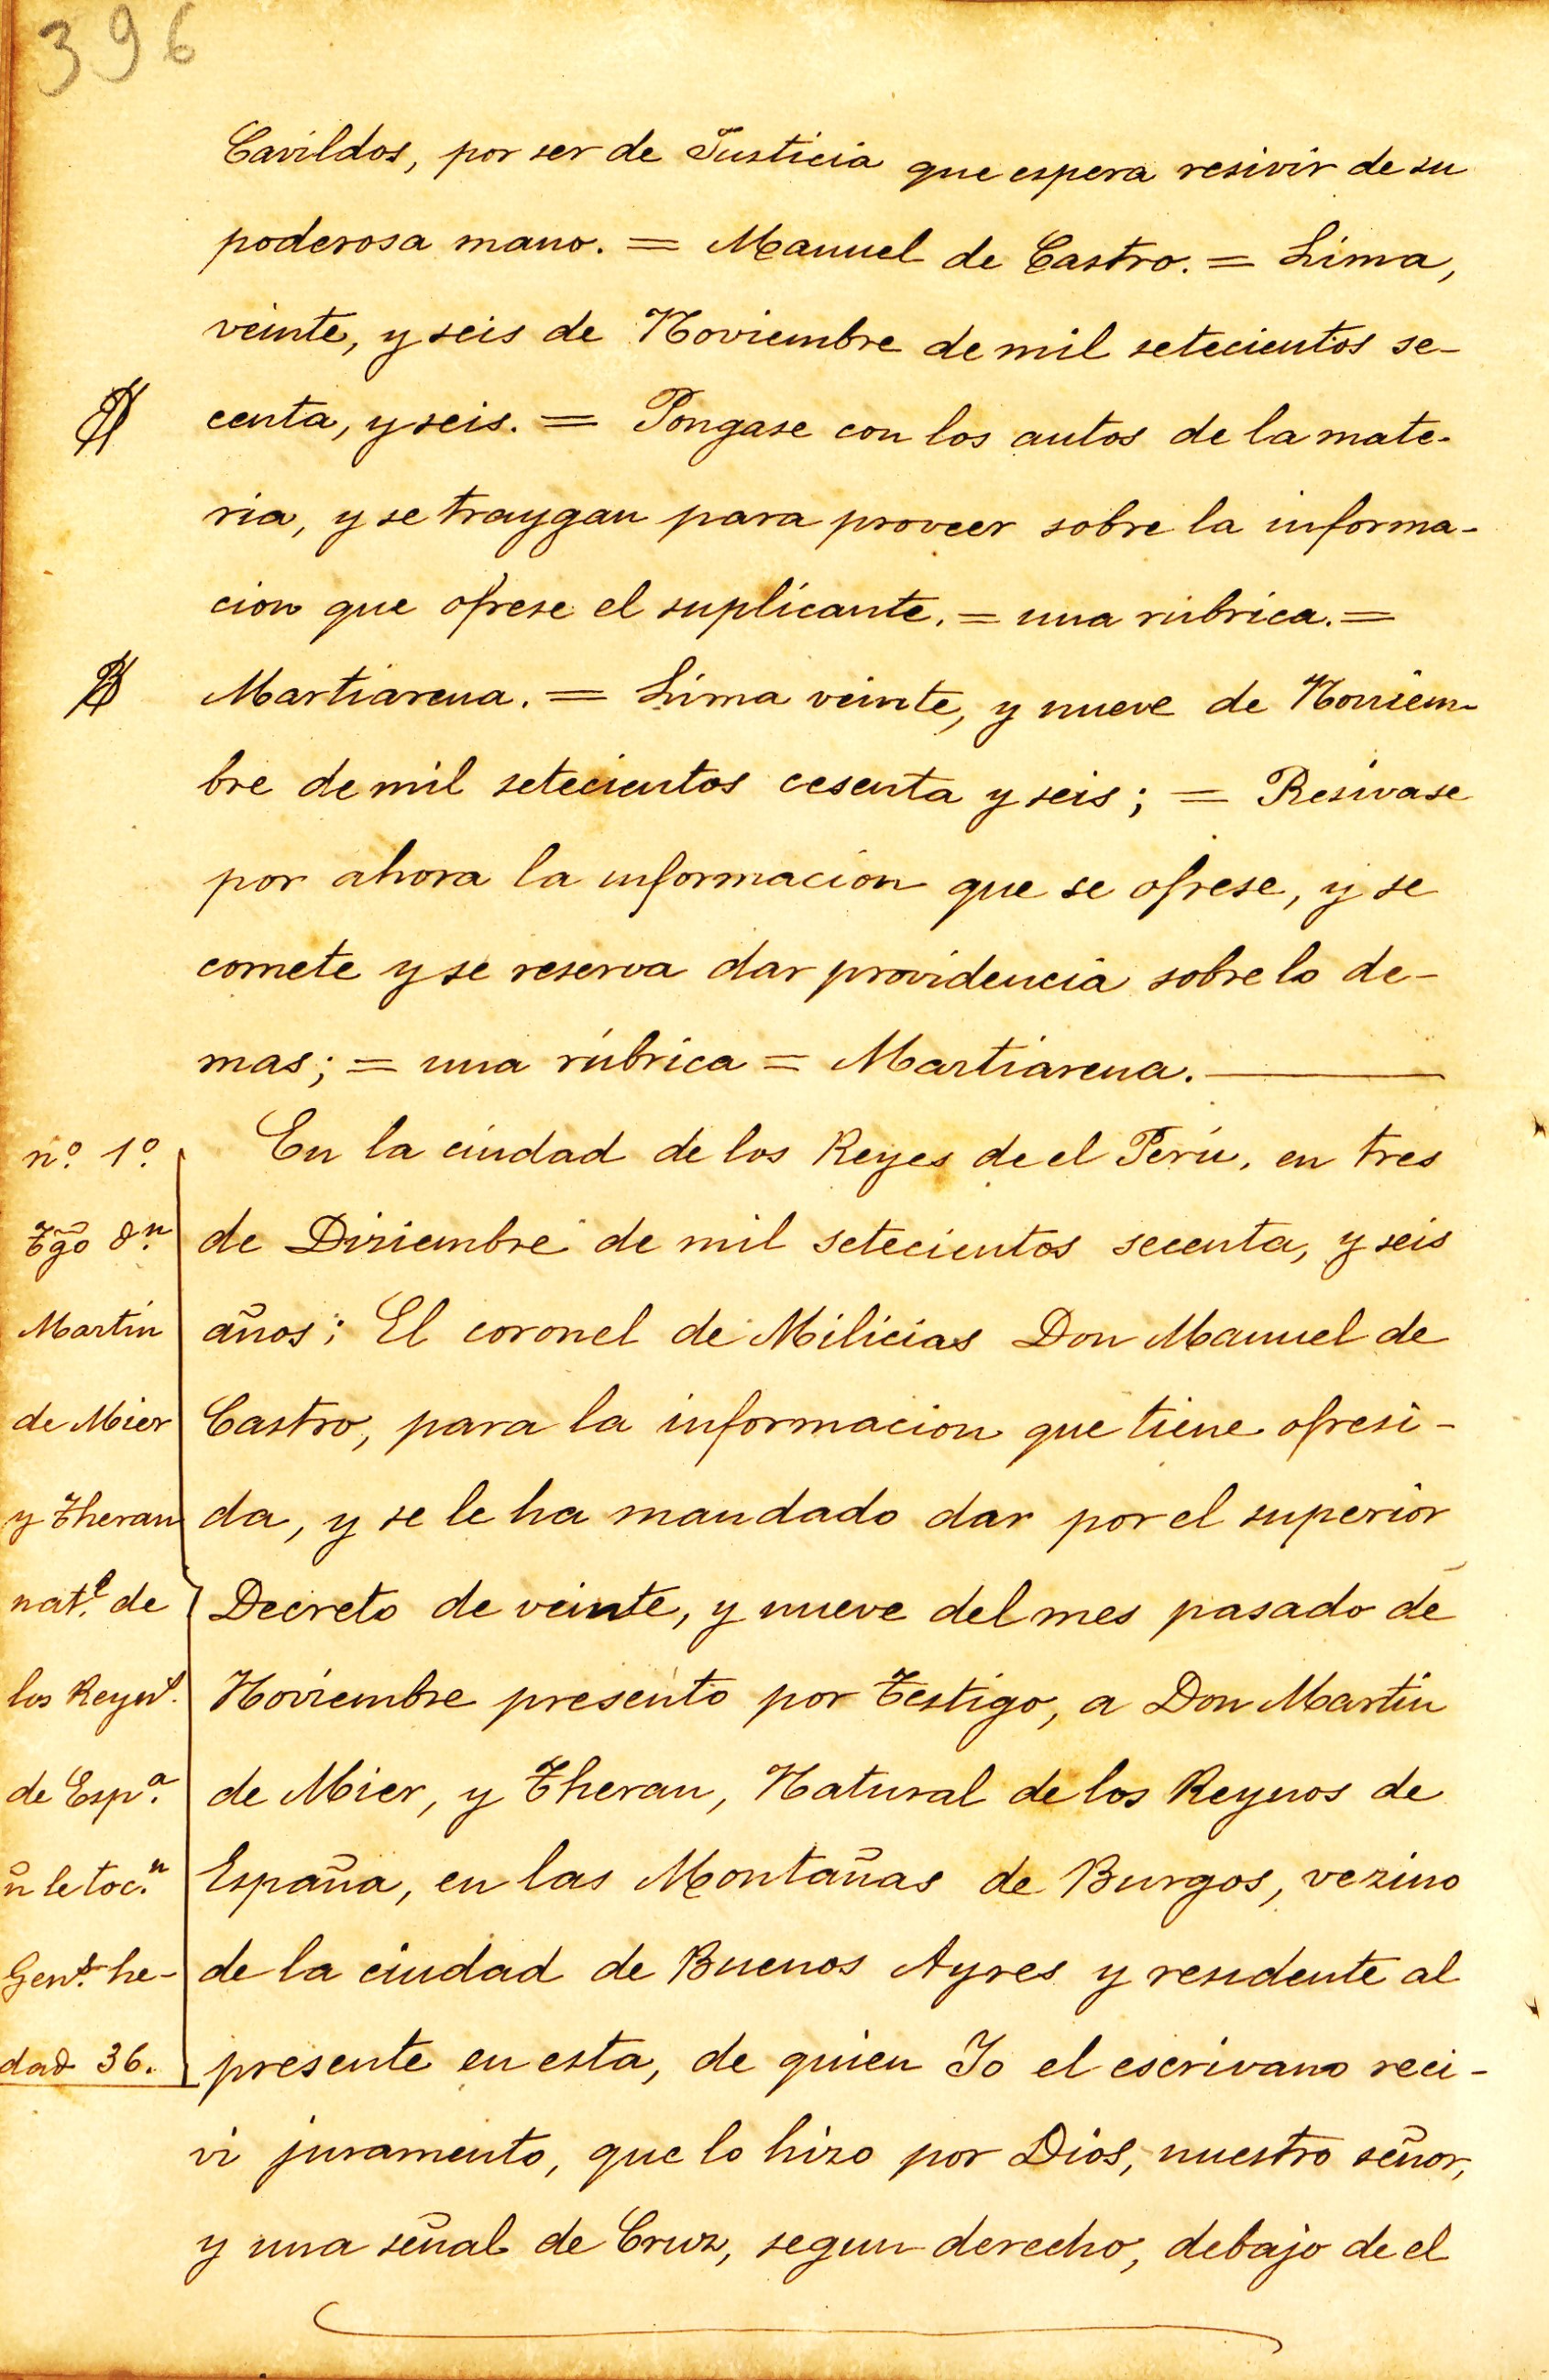 396
Cavildos, por ser de Justicia que espera resivir de su
poderosa mano. = Manuel de Castro. = Lima,
veinte, y seis de Noviembre de mil setecientos se-
centa, y seis. = Pongase con los autos de la mate-
ria, y se traygan para proveer sobre la informa-
cion que ofrese el suplicante. = una rúbrica. =
Martiarena. = Lima veinte, y nueve de Noviem-
bre de mil setecientos cesenta y seis; = Resivase
por ahora la informacion que se ofrese, y se
comete y se reserva dar providencia sobre lo de-
mas; = una rúbrica = Martiarena.
En la ciudad de los Reyes de el Perú, en tres
de Diziembre de mil setecientos secenta, y seis
años; El coronel de Milicias Don Manuel de
Castro, para la informacion que tiene ofresi-
da, y se le ha mandado dar por el superior
Decreto de veinte, y nueve del mes pasado de
Noviembre presento por Testigo, a Don Martin
de Mier, y Theran, Natural de los Reynos de
España, en las Montañas de Burgos, vezino
de la ciudad de Buenos Ayres y residente al
presente en esta, de quien Yo el escrivano reci-
vi juramento, que lo hizo por Dios, nuestro señor,
y una señal de Cruz, segun derecho, debajo de el
nº. 1º.
Tg̃o Dn.
Martin
de Mier
y Theran
natl. de
los Reyns.
de Espa.
ñ le tocn.
Gens. he-
dad 36.